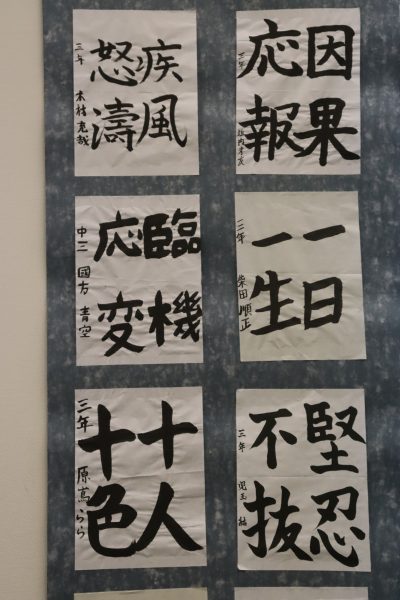 因果
応報
三年
疾風
怒濤
三年 木村
一日
一生
二年 柴田順正
臨機
応変
中三 國方 青空
堅忍
不抜
三年 児玉
十人
十色
三年 原蔦らら